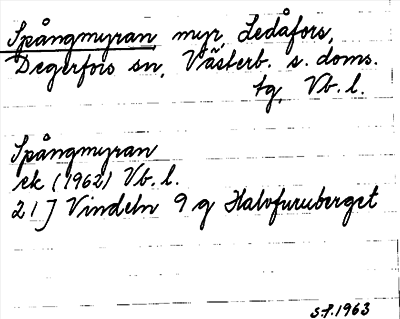 Spångmyran myr, Ledåfors,
Degerfors sn, Västerb. s. doms.
tg, Vb. l.
Spångmyran
ek (1962) Vb. l.
21 J Vindeln 9 g Halvfuruberget
s.f. 1963